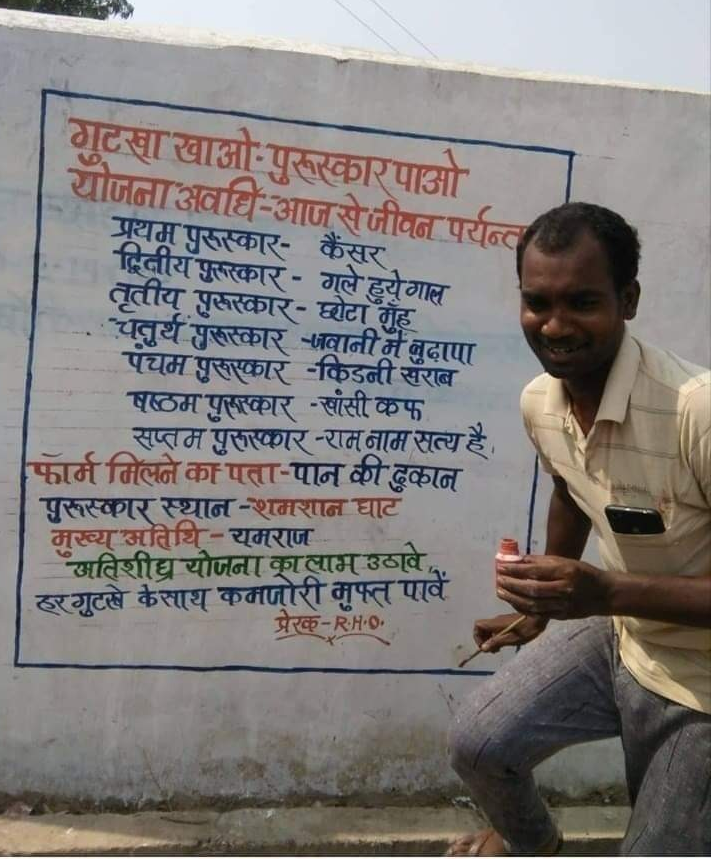 गुटखा खाओ-पुरूस्कार पाओ
योजना अवधि-आज से जीवन पर्यन्त
प्रथम पुरूस्कार- कैंसर
द्वितीय पुरूस्कार - गले हुये गाल
तृतीय पुरूस्कार- छोटा मुंह
चतुर्थ पुरूस्कार -जवानी में बुढापा
पंचम पुरूस्कार -किडनी खराब
षष्ठम पुरूस्कार -खांसी कफ
सप्तम पुरूस्कार -राम नाम सत्य है.
फॉर्म मिलने का पता-पान की दुकान
पुरूस्कार स्थान-शमशान घाट
मुख्य अतिथि- यमराज
अतिशीघ्र योजना का लाभ उठावे,,
हर गुटखे के साथ कमजोरी मुफ्त पावें
प्रेरक-R.H.O.